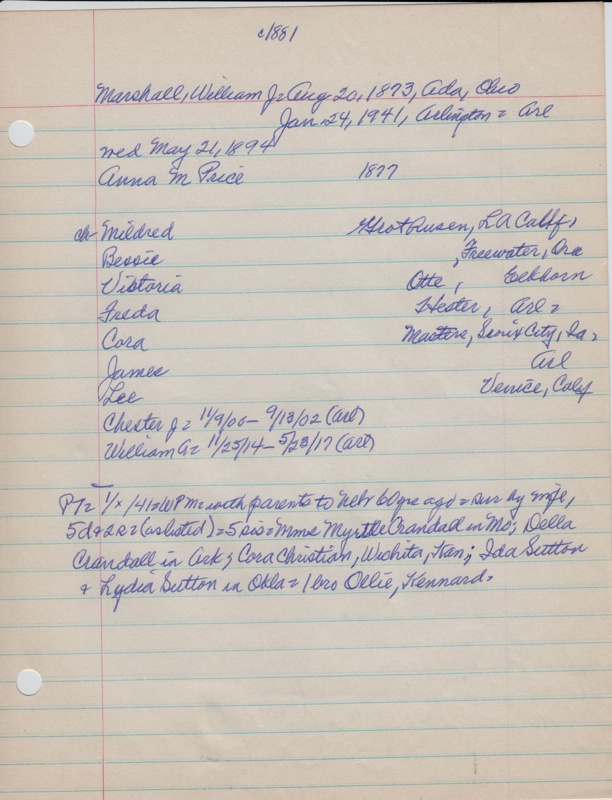 c/881
Marshall, William J = Aug 20, 1873, Ada, Ohio
Jan 24, 1941, Arlington = Arl
wed May 21, 1894
Anna M Price 1877
ch- Mildred Grothusen, LA Calif,
Bessie , Freewater, Ore
Victoria Otte, Elkhorn
Freda Hester, Arl =
Cora Masters, Sioux City, Ia =
James Arl
Lee Venice, Calif
Chester J = 11/9/00 - 9/13/02 (Arl)
William A = 11/25/14 - 5/23/17 (Arl)
PT = 1/x /41 = WPM = with parents to Nebr 60 yrs ago = sur by wife,
5d + 2s = (as listed) = 5 sis = Mmes Myrtle Crandall in Mo; Della
Crandall in Ark; Cora Christian, Wichita, Kan; Ida Sutton
& Lydia Sutton in Okla = 1 bro Ollie, Kennard =